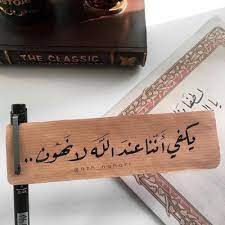 THE CLASSIC
يكفي أننا عند الله لا نهون ..